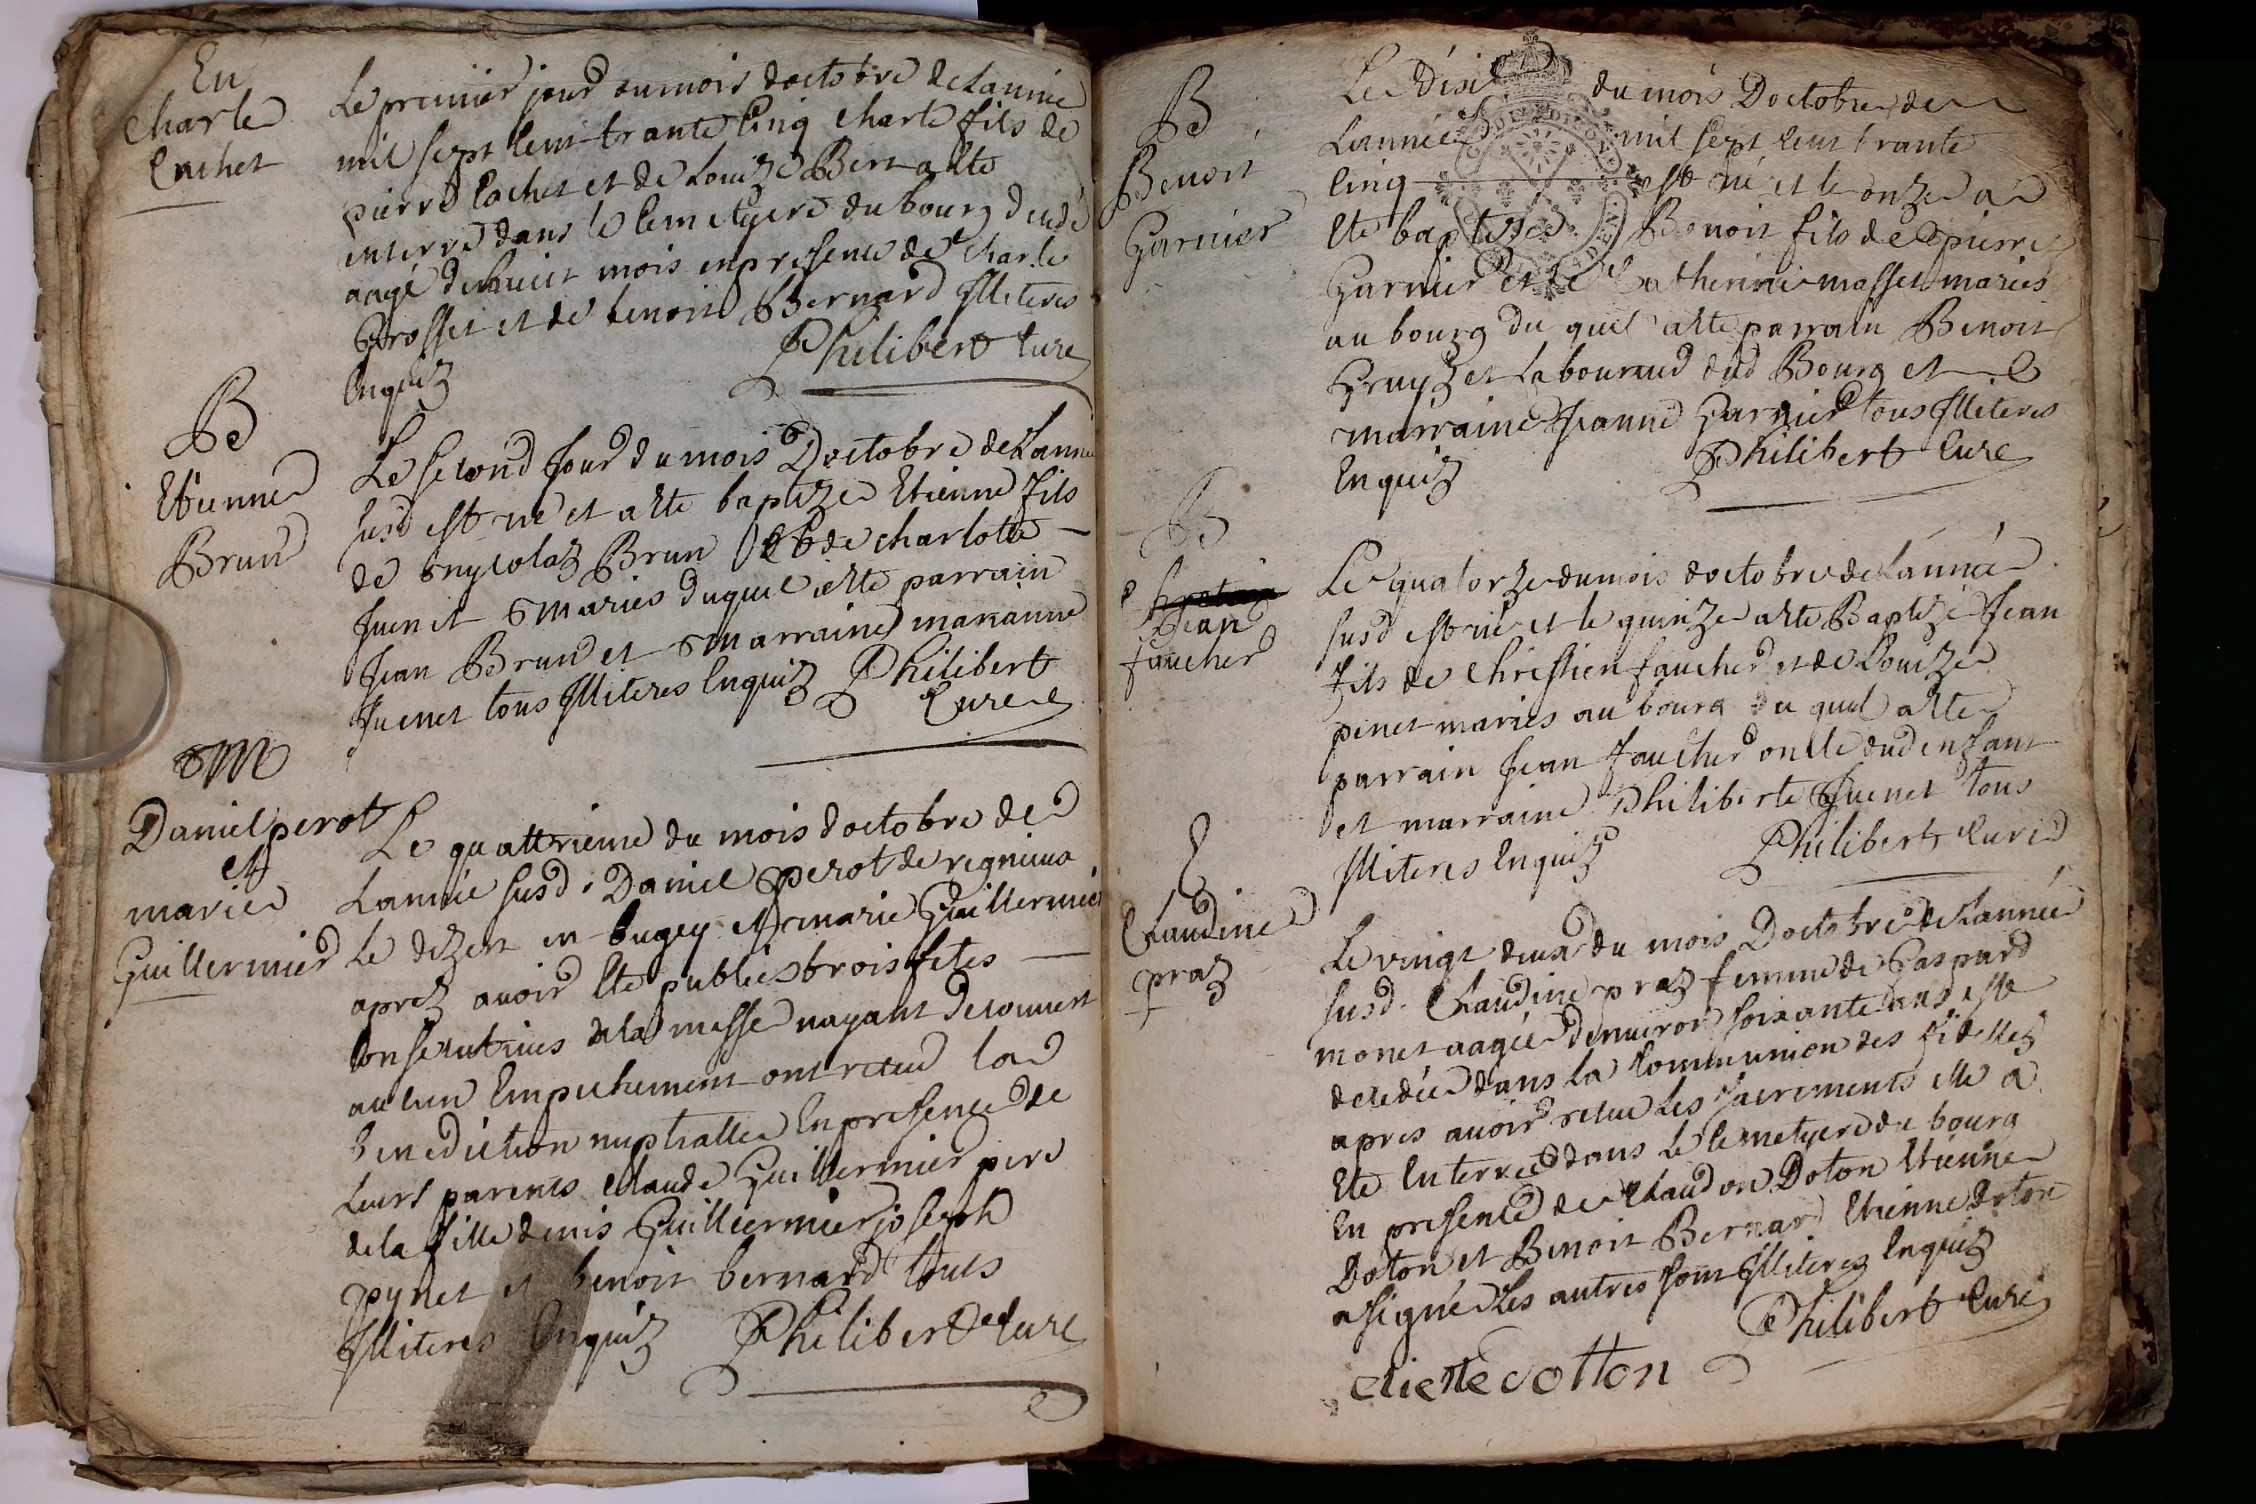 En
Charle
Cachet
Le premier jour du mois doctobre de Lannée
mil sept cent trante cinq charle fils de
pierre Cachet et de Louize Bert a ete
interré dans le cemetyere du bourg dudé
aagé dehuict mois en presence de Charle
Grosset et de benoit Bernard Illiteres
enquiz
Philibert Curé
B
Etienne
Brun
Le second Jour du mois Doctobre de Lanné
susd est né et a ete baptize Etienne fils
de nycolaz Brun et de charlotte
Juenet maries duquel a ete parrain
Jean Brun et marraine marianne
Juenet tous Illiteres Enquiz Philibert
Curé
M
Daniel perot
et
marie
Guillermier
Le quattrieme du mois doctobre de
Lannée susd. Daniel perot de regnieux
Le dezert en bugey et marie Guillermier
aprez avoir ete publies trois fetes
consecutives a la messe nayant decouvert
aucun Empechement ont recu la
benediction nuptialle En presence de
Leurs parents Claude Guillermier pere
de la fille denis Guilliermier joseph
pynet et benoit bernard touts
Illiteres Enquiz Philibert Curé
B
Benoit
Garnier
Le dixi du mois Doctobre de
Lannée mil sept cent trante
cinq est né et le onze a
ete baptize Benoit fils de pierre
Garnier et de Catherine masset maries
au bourg du quel a ete parrain Benoit
Gruyz et Labouraud dud Bourg et
marraine Jeanne Garnier tous Illiteres
Enquiz
Philibert Curé
B
Jean
faucher
Le quatorze du mois doctobre de Lannée
susd est né et le quinze a ete Baptizé Jean
fils de Chrestien faucher et de Louize
pinet maries au bourg du quel a ete
parrain Jean faucher oncle dud enfant
et marraine Philiberte Juenet tous
Illiteres Enquiz
Philibert Curé
E
Claudine
praz
Le vingt deux du mois Doctobre de Lannée
susd. Claudine praz femme de Gaspard
monet aagée denviron soixante ans est
decedée dans la Communion des fidellez
apres avoir recue les sacrements elle a
ete Enterrée dans Le Cemetyere de bourg
En presence de Claudon Doton Etienne
Doton et Benoit Bernard Etienne Doton
a signé Les autres sont Illiteres Enquiz
Philibert Curé
etiene dotton